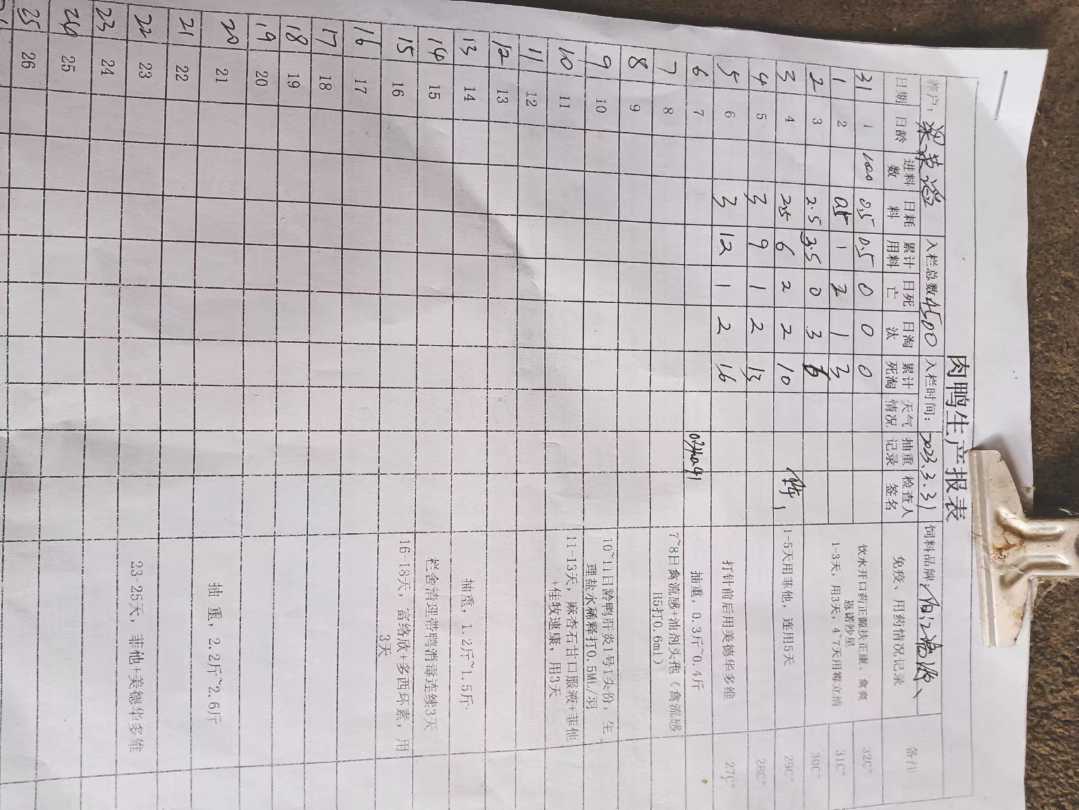 肉鸭生产报表
养户: 梁 入栏总数4500 入栏时间: 2023.3.31 饲料品牌
日期 日龄 进料数 日耗料 累计用料 日死亡 日淘汰 累计死淘 天气情况 抽重记录 检查人签名 免疫、用药情况记录 备注
31 1 100 0.5 0.5 0 0 0 饮水开口药正源扶正康、禽炎 恩诺沙星 32C°
1 2 0.5 1 2 1 3 1-3天，用3天，4~7天用 31C°
2 3 2.5 3.5 0 3 6 30C°
3 4 2.5 6 2 2 10 1-5天用菲他，连用5天 29C°
4 5 3 9 1 2 13 28C°
5 6 3 12 1 2 16 打针前后用美德华多维 27C°
6 7 抽重，0.3斤~0.4斤
7 8 7~8日禽流感+油剂头孢（禽流感H5打0.6ml）
8 9
9 10 10~11日龄鸭肝炎1号1头份，生理盐水稀释打0.5ML/羽
10 11 11-13天，麻杏石甘口服液+菲他+佳牧速康，用3天
11 12
12 13
13 14 抽重，1.2斤~1.5斤
14 15 栏舍清理带鸭消毒连续3天
15 16 16-18天，富络欣+多西环素，用3天
16 17
17 18
18 19
19 20
20 21 抽 重，2.2斤~2.6斤
21 22
22 23 23-25天，菲他+美德华多维
23 24
24 25
25 26